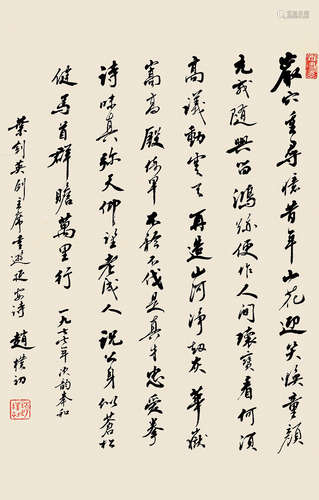 岩穴重寻忆昔年山花迎笑焕童颜
元戎随兴留鸿
便作人间瓌宝看何须
高议动云天再造山河净劫灰华岳
嵩高殿
不矜不伐是真牛忠爱拳
诗味真弥天仰望老成人说公身似苍松
健马首群瞻万里行
一九七七年次韵奉和
叶剑英副主席重游延安诗
赵朴初